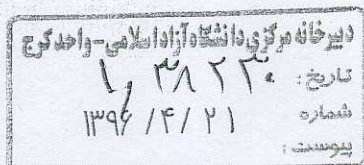 دبیرخانه مرکزی دانشگاه آزاد اسلامی-واحد کرج
تاریخ: ۱٫۳۸۲۳۰
شماره ۱۳۹۶/۴/۲۱
پیوست: